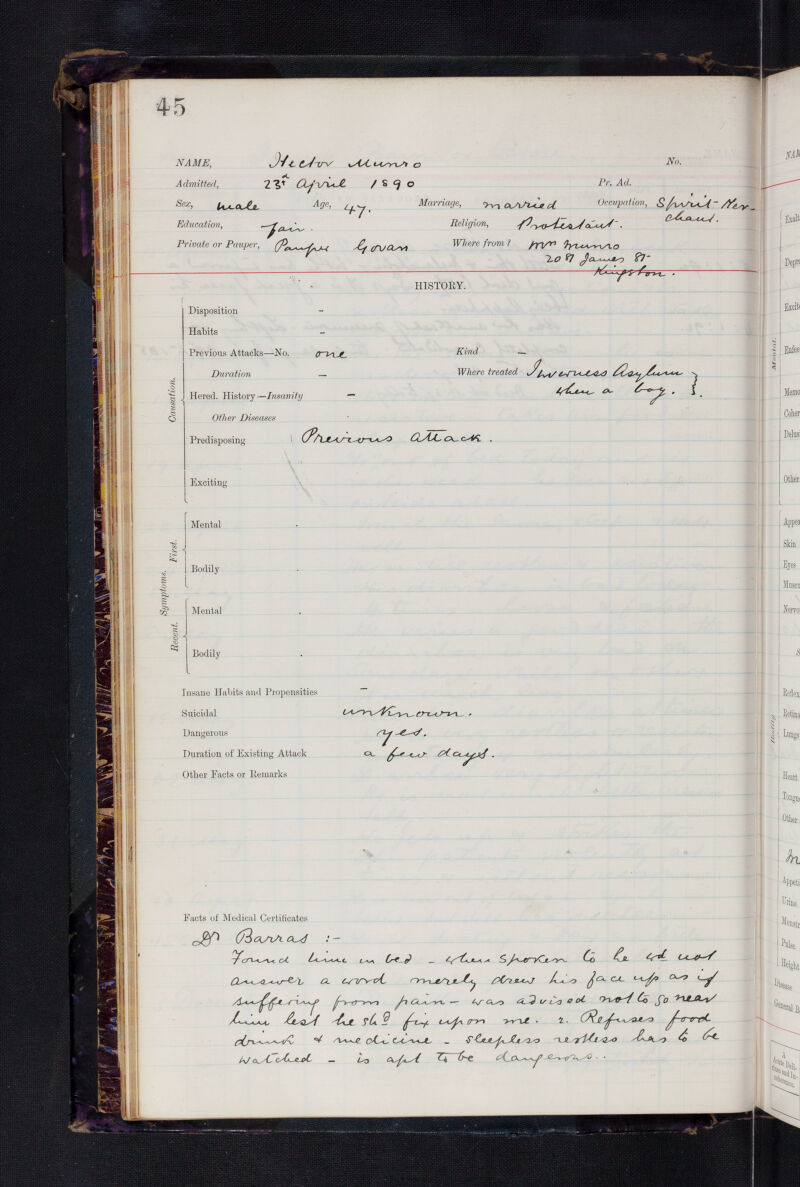 45
NAME, Hector Munro No.
Admitted, 23rd April 1890 Pr. Ad.
Sex, male Age, 47. Marriage, married Occupation, Spirit-Mer-
chant.
Education, fair. Religion, Protestant.
Private or Pauper, Pauper Govan Where from? Mrs Munro
20 St James St
Kingston.
HISTORY.
Causation.
Disposition -
Habits -
Previous Attacks—No. one Kind -
Duration - Where treated Inverness Asylum
when a boy.
Hered. History—Insanity -
Other Diseases
Predisposing Previous attack.
Exciting
Symptoms.
First.
Mental
Bodily
Recent.
Mental
Bodily
Insane Habits and Propensities -
Suicidal unknown.
Dangerous yes.
Duration of Existing Attack a few days.
Other Facts or Remarks
Facts of Medical Certificates
Dr Barras :-
Found him in bed - when spoken to he wd not
answer a word merely drew his face up as if
suffering from pain - was advised not to go near
him lest he shd fix upon me. 2. Refuses food
drink & medicine - sleepless restless has to be
watched - is apt to be dangerous.
NAM
Mental.
Exalt
Depre
Excite
Enfee
Memo
Coher
Delus
Other
Bodily
Appea
Skin
Eyes
Muscu
Nervo
Reflex
Retina
Lungs
Heart
Tongue
Other
Appeti
Urine
Menstr
Pulse
Height
Disease
General B